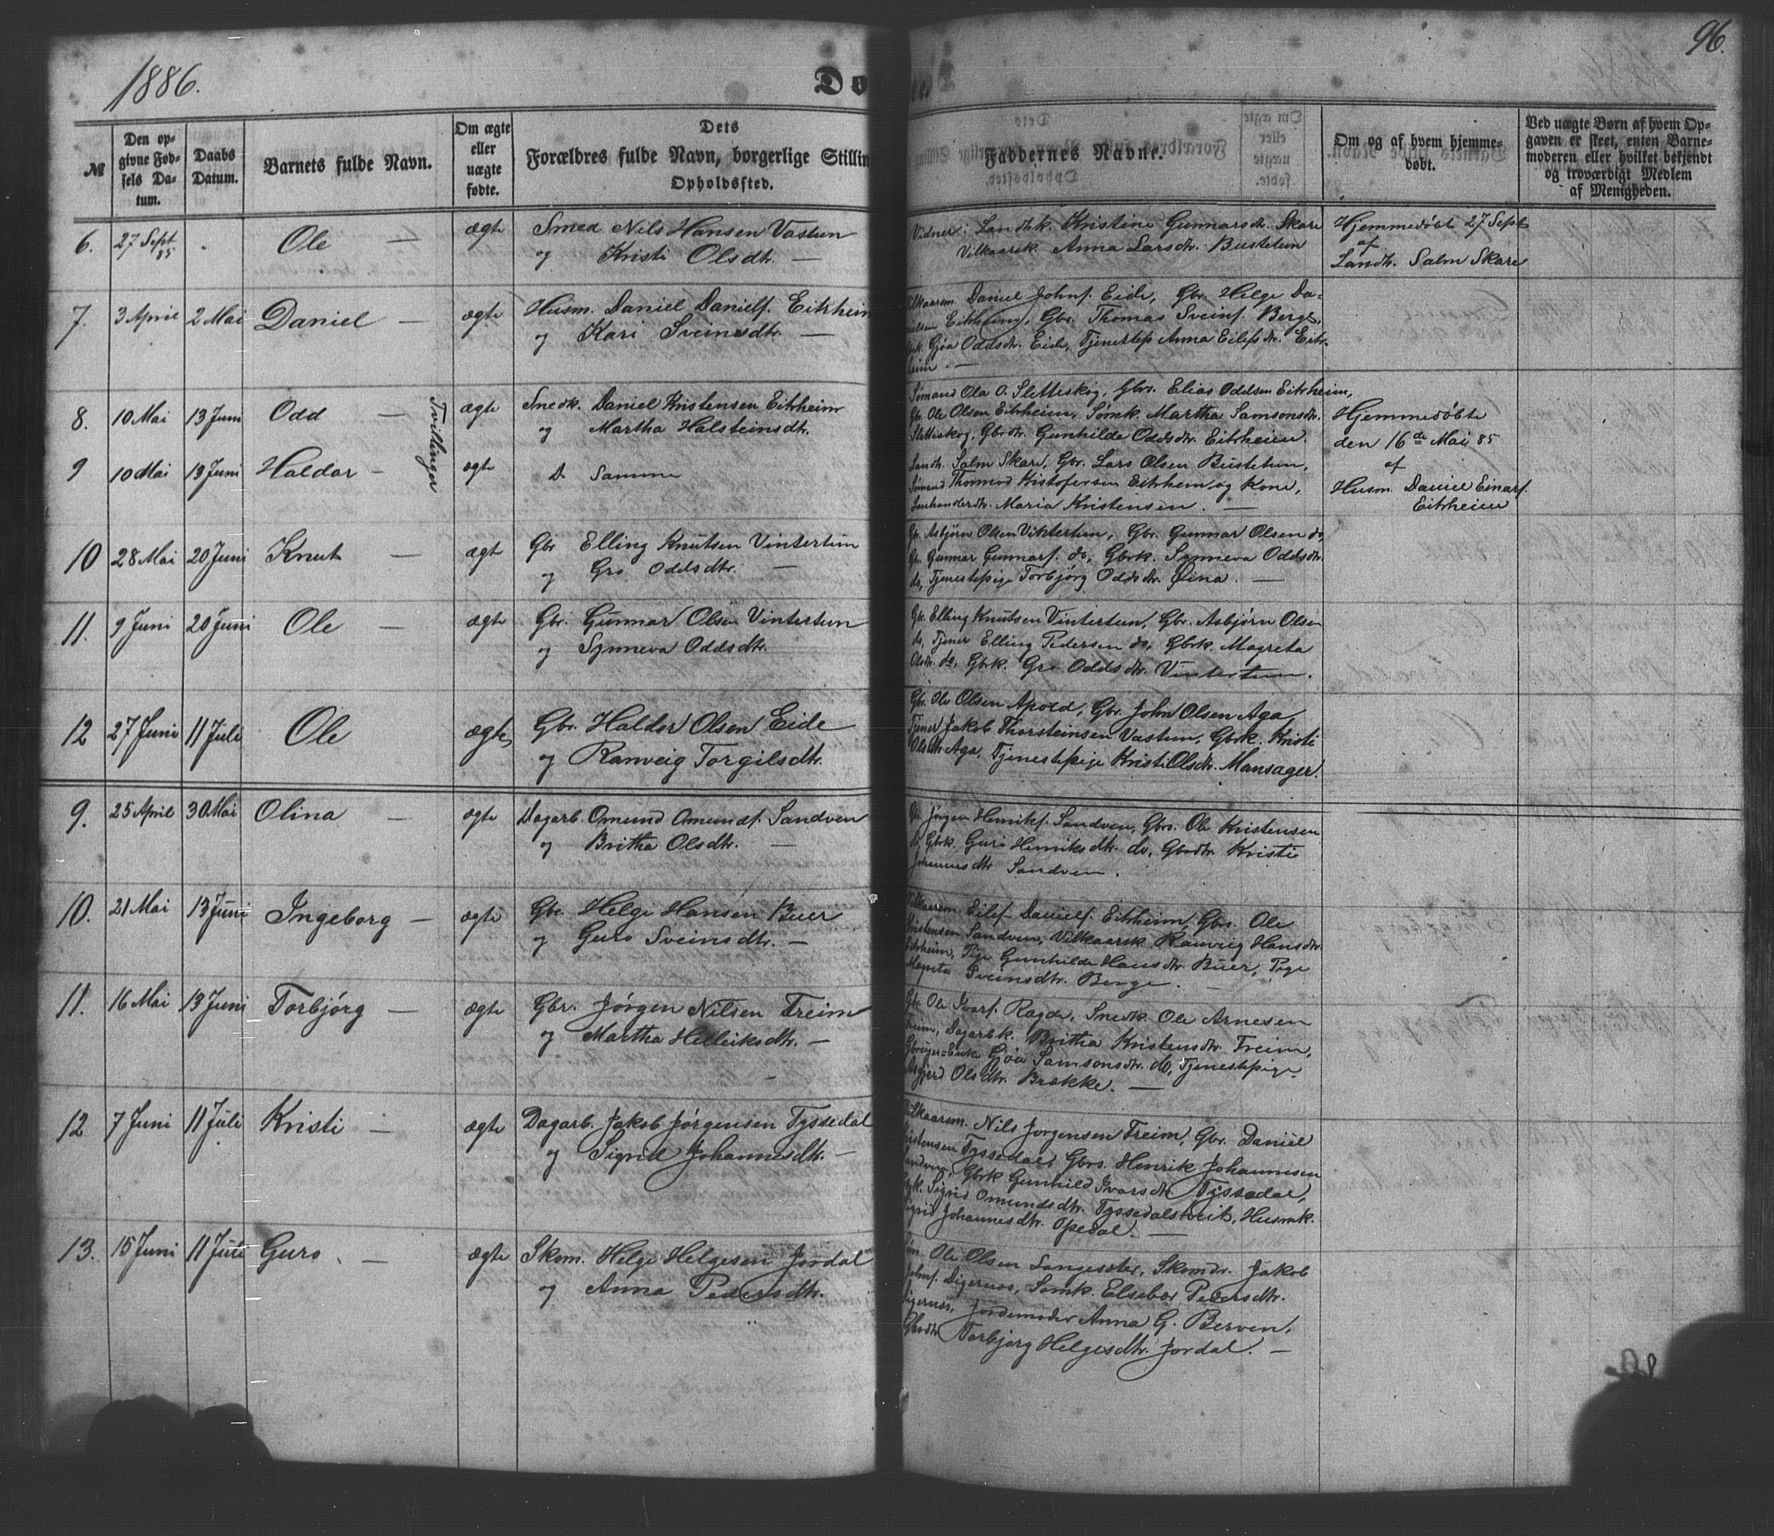 1886.
96.
Do
№
Den opgivne Fødsels Datum.
Daabs Datum.
Barnets fulde Navn.
Om ægte eller uægte fødte.
Dets
Forældres fulde Navn, borgerlige Stillin
Opholdssted.
Faddernes Navne.
Om og af hvem hjemmedøbt.
Ved uægte Børn af hvem Opgaven er skeet, enten Barnemoderen eller hvilket bekjendt og troværdigt Medlem af Menigheden.
6. 27 Sept 85 . Ole — ægte
Smed Nils Hansen Vastun
og Kristi Olsdtr. —
Vidner: Landhk. Kristine Gunnarsdr. Skare
Vilkaarsk. Anna Larsdtr. Bustetun
Hjemmedøbt 27 Sept
af
Landh. Salm. Skare
7. 3 April 2 Mai Daniel — ægte
Husm. Daniel Danielf. Eitrheim
og Kari Sveinsdtr. —
Vilkaarsm. Daniel Johnf. Eide, Gbr. Helge Da-
nielsen Eitrheim, Gbr. Thomas Sveinf. Berge,
Gjøa Oddsdtr. Eide, Tjenestep. Anna Eilefsdtr. Eitr-
heim. —
8. 10 Mai 13 Juni Odd — Tvillinger ægte
Snedk. Daniel Kristensen Eitrheim
og Martha Halsteinsdtr.
Sømand Ola O. Sletteskog, Gbr. Elias Oddsen Eitrheim,
Gbr. Ole Olsen Eitrheim, Sømk. Martha Samsonsdtr.
Slettiskog, Gbrdtr. Gunhilde Oddsdtr. Eitrheim.
Hjemmedøbte
den 16de Mai 85
af
Husm. Daniel Einarf.
Eitrheim
9 10 Mai 13 Juni Haldor — ægte
D. Samme
Landh. Salm. Skare, Gbr. Lars Olsen Bustetun,
Sømand Thormod Kristofersen Eitrheim og Kone,
Maria Kristensen. —
10 28 Mai 20 Juni Knut — ægte
Gbr Elling Knutsen Vintertun
og Gro Oddsdtr. —
Gbr. Asbjørn Olsen Vintertun, Gbr. Gunnar Olsen do,
Gbr. Gunnar Gunnarf. do, Gbrk. Synneva Oddsdtr.
do, Tjenestepige Torbjørg Oddsdtr. —
11. 9 Juni 20 Juni Ole — ægte
Gbr. Gunnar Olsen Vintertun
og Synneva Oddsdtr.
Gbr. Elling Knutsen Vintertun, Gbr. Asbjørn Olsen
do, Tjener Elling Pedersen do, Gbrk. Magreta
Olsdtr. do, Gbrk. Gro Oddsdtr. Vintertun.
12 27 Juni 11 Juli Ole ægte
Gbr. Haldor Olsen Eide
og Ranveig Torgilsdtr.
Gbr. Ole Olsen Apold, Gbr. John Olsen Aga
Tjener Jakob Thorsteinsen Vastun, Gbrk. Kristi
Olsdtr Aga, Tjenestepige Kristi Olsdtr. Mansager.
9. 25 April 30 Mai Olina — ægte
Dagarb. Omund Omundf. Sandven
og Britha Olsdtr. —
Gbr. Jørgen Henrikf. Sandven, Gbrs. Ole Kristensen
do, Gbrk. Guri Henriksdtr. do, Gbrdtr. Kristi
Johannesdtr Sandven.
10. 21 Mai 13 Juni Ingeborg — ægte
Gbr. Helge Hansen Buer
og Guro Sveinsdtr. —
Vilkaarsm. Eilef Danielf. Eitrheim, Gbrs. Ole
Kristensen Sandven, Vilkaarsk. Ranveig Hansdtr.
Eitrheim, Pige Gunhilde Hansdtr. Buer, Pige
Magreta Sveinsdtr. Berge. —
11. 16 Mai 13 Juni Torbjørg — ægte
Gbr. Jørgen Nilsen Freim
og Martha Helleiksdtr. —
Gbr. Ole Ivarf. Ragde, Snedk. Ole Arnesen
Freim, Dagarbk. Britha Kristensdtr. Freim,
Gjøa Samsonsdtr. do, Tjenestepige
Olsdtr. Brække. —
12 7 Juni 11 Juli Kristi — ægte
Dagarb. Jakob Jørgensen Tyssedal
og Sigrid Johannesdtr. —
Vilkaarsm. Nils Jørgensen Freim, Gbr. Daniel
Kristensen Tyssedal, Gbrs. Henrik Johannesen
Sandven, Gbrk Gunhild Ivarsdtr. Tyssedal,
Sigrid Omundsdtr. Tyssedalstveit, Husmk.
Sigrid Johannesdtr. Opedal. —
13. 15 Juni 11 Juli Guro . — ægte
Skom. Helge Helgesen Jordal
og Anna Pedersdtr.
Ole Olsen Langesæter, Skomdr. Jakob
Johnf. Digernes, Sømk. Elsebær Pedersdtr.
Digernes, Jordemoder Anna G. Berven,
Gbrdtr Torbjørg Helgesdtr. Jordal. —